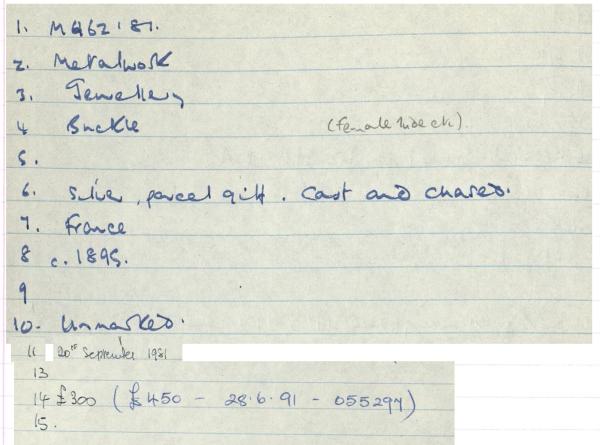 1. M462'81.
2. Metalwork
3. Jewellery
4 Buckle (female
5.
6. Silver, parcel gilt. Cast and chased.
7. France
8 c. 1895.
9
10. Unmarked.
11 20th September 1981
13
14 £300 (£450 - 28.6.91 - 055297)
15.